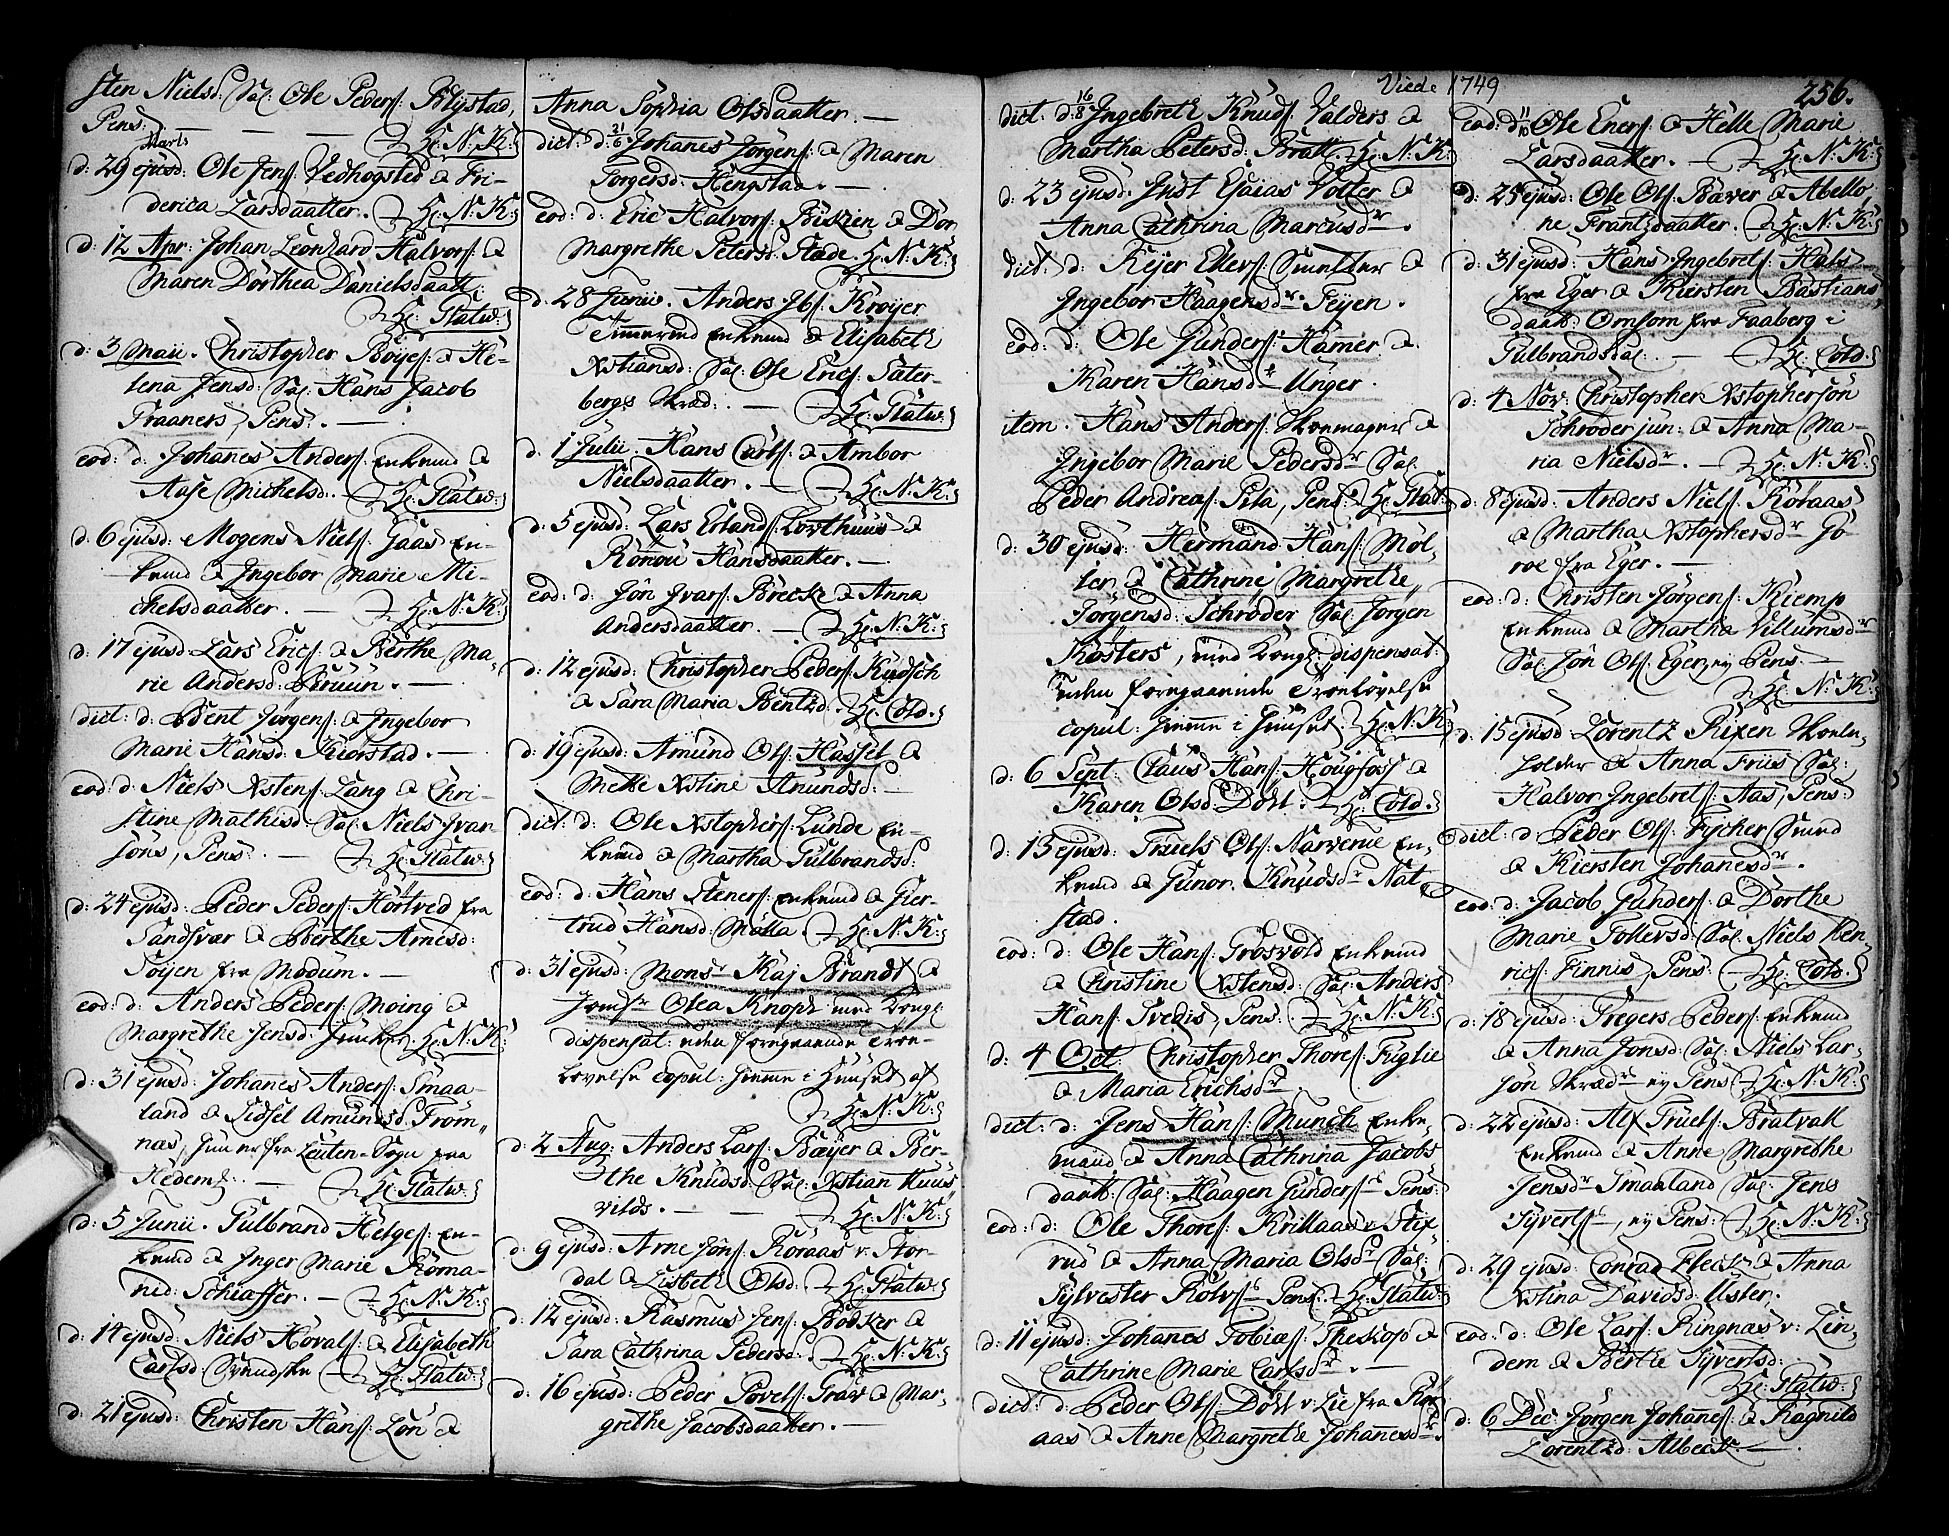 sten Nielsd: Sal: Ole Peders: Blystad,
Pens: — — — Hr: N: K:
Marts
d: 29 ejusd: Ole Jens: Vedhogsted & Fri-
derica Larsdaatter. — Hr: N: K:
d: 12 Apr: Johan Leonhard Halvors: &
Maren Dorthea Danielsdaatt:
Hr: Statw:
d: 3 Maii. Christopher Böyes: & He-
lena Jensd: Sal: Hans Jacob
Fraaners, Pens: —
eod: d: Johanes Anders: Enkemd &
Aase Michelsd. — Hr: Statw:
d: 6 ejusd: Mogens Niels: Gaas En-
kemd & Ingebor Marie Mi-
chelsdaatter. — Hr: N: K:
d: 17 ejusd: Lars Erics: & Berthe Ma-
rie Andersd: Bruun. —
dict: d: Bent Jørgens: & Ingebor
Marie Hansd: Kiorstad. —
eod: d: Niels Xstens: Lang & Chri-
stine Mathisd: Sal: Niels Ivar-
sons, Pens: — Hr: Statw:
d: 24 ejusd: Peder Peders: Hörtved fra
Sandsvær & Berthe Arnesd:
Söyen fra Modum. —
eod: d: Anders Peders: Moing &
Margrethe Jensd: Juncker. Hr: N: K:
d: 31 ejusd: Johanes Anders: Smaa-
land & Sidsel Amundsd: From-
næs, hun er fra Leuten-Sogn paa
Hedem: — Hr: Statw:
d: 5 Junii. Gulbrand Helges: En-
kemd & Inger Marie Roma-
nid: Schieffer. — Hr: N: K:
d: 14 ejusd: Niels Hovals: & Elisabeth
Carlsd: Svendske — Hr: Statw:
d: 21 ejusd: Christen Hans: Lön &
Anna Sophia Olsdaatter. —
dict: d: 21/6 Johanes Jørgens: & Maren
Torgersd: Hengstad. —
eod: d: Eric Halvors: Bitzien & Dor
Margrethe Petersd: Stade. Hr: N: K:
d: 28 Junii. Anders Jbs: Kroyer
Timermd Enkemd & Elisabeth
Xstiansd: Sal: Ole Erics: Sater-
bergs Skræd: — Hr: Statw:
d: 1 Julii. Hans Carls: & Ambor
Nielsdaatter. — Hr: N: K:
d: 5 ejusd: Lars Erlands: Lorthuus &
Ronou Hansdaatter. —
eod: d: Jon Ivars: Brecke & Anna
Andersdaatter. — Hr: N: K:
d: 12 ejusd: Christopher Peders: Kydsch
& Sara Maria Bentzd: Hr: Cold:
d: 19 ejusd: Amund Ols: Hassel &
Mette Xstine Amundsd: —
dict: d: Ole Xstophers: Lunde En-
kemd & Martha Gulbrandsd:
eod: d: Hans Steners: Enkemd & Gier-
trud Hansd: Molla. Hr: N: K:
d: 31 ejusd: Monsr Kaj Brandt &
Jomfr Olea Knoph med Kongl:
dispensat: uden foregaaende Troe-
lovelse copul: hieme i Huuset af
Hr: N: K:
d: 2 Aug: Anders Lars: Bæyer & Ber-
the Knudsd: Sal: Xstian Kuus-
vilds. — — Hr: N: K:
d: 9 ejusd: Arne Jons: Roraas v: Stor-
dal & Lisbeth Olsd: Hr: Statw:
d: 12 ejusd: Rasmus Jens: Bödker &
Sara Cathrina Pedersd: Hr: N: K:
d: 16 ejusd: Peder Povels: Grav & Mar-
grethe Jacobsdaatter. —
Viede 1749
256.
dict: d: 16/8 Ingebreth Knuds: Valders &
Martha Petersd: Bratt. Hr: N: K:
d: 23 ejusd: Just Esaias Potter &
Anna Cathrina Marcusdr.
dict: d: Rejer Ellevs: Smelter &
Ingebor Haagensdr Feyen.
eod: d: Ole Gunders: Hamer &
Karen Hansdr Unger.
item. Hans Anders: Skoemager &
Ingebor Marie Pedersdr Sal:
Peder Andreas: Pila, Pens: Hr: Stat:
d: 30 ejusd: Hermand Hans: Möl-
ler & Cathrine Margrethe
Jørgensd: Schroder Sal: Jørgen
Kosters, med Kongl: dispensat:
uden foregaaende Troelovelse
copul: hieme i Huuset. Hr: N: K:
d: 6 Sept: Claus Hans: Hougfoss &
Karen Olsd: Dobl. Hr: Cold:
d: 13 ejusd: Truels Ols: Narverue En-
kemd & Gunor. Knudsdr Nat-
stad.
eod: d: Ole Hans: Grosvold Enkemd
& Christine Xstensd: Sal: Anders
Hans: Tvedis, Pens: Hr: N: K:
d: 4 Oct: Christopher Thores: Fuglie
& Maria Erichsdr —
dict: d: Jens Hans: Munch Enke-
mand & Anna Cathrina Jacobs-
daatt: Sal: Haagen Gunders: Pens:
eod: d: Ole Thores: Krillaas v: Stix-
rud & Anna Maria Olsdr Sal:
Sylvester Rolvs: Pens: Hr: Statw:
d: 11 ejusd: Johanes Tobias: Theskop &
Cathrine Marie Carlsdr. —
dict: d: Peder Ols: Dobl v: Lie fra Ror-
aas & Anne Margrethe Johanesdr.
eod: d: 11/10 Ole Eners: & Helle Marie
Larsdaatter. — Hr: N: K:
d: 25 ejusd: Ole Ols: Bæver & Abello-
ne Frantzdaatter. Hr: N: K:
d: 31 ejusd: Hans Ingebrets: Hals
fra Eger & Kiersten Bastians-
daatt: Omsom fra Faaberg i
Gulbrandsdal. — Hr: Cold:
d: 4 Nov: Christopher Xstophersön
Schröder jun: & Anna Ma-
ria Nielsdr. — Hr: N: K:
d: 8 ejusd: Anders Niels: Roraas
& Martha Xstophersdr Jo-
roe fra Eger. —
eod: d: Christen Jørgens: Kiemp
Enkemd & Martha Villumsdr
Sal: Jon Ols: Egers, ny Pens: —
Hr: N: K:
d: 15 ejusd: Lorentz Rixen Skole-
holder & Anna Friis Sal:
Halvor Ingebrets: Aas, Pens:
dict: d: Peder Ols: Fycher Smed
& Kiersten Johanesdr.
eod: d: Jacob Gunders: & Dorthe
Marie Tollevsd: Sal: Niels Hen-
rics: Finnis, Pens: — Hr: Cold:
d: 18 ejusd: Gregers Peders: Enkemd
& Anna Jonsd: Sal: Niels Lar-
son Skrædr ny Pens: Hr: N: K:
d: 22 ejusd: Alf Truels: Bratvall
Enkemd & Anne Margrethe
Jensdr Smaaland Sal: Jens
Syverts: ny Pens: Hr: N: K:
d: 29 ejusd: Conrad Fleck & Anna
Xstina Davidsd: Uster.
eod: d: Ole Lars: Ringnæs v: Lin-
dem & Berthe Syvertsd:
Hr: Statw:
d: 6 Dec: Jørgen Johanes: & Ragnild
Lorentzd: Albeck. —